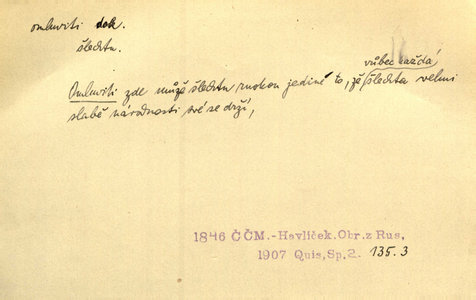 omluviti dok.
šlechtu.
vůbec každá
Omluviti zde může šlechtu ruskou jedině to, že šlechta velmi
slabě národnosti své se drží,
1846 ČČM.-Havlíček.Obr.z Rus,
1907 Quis,Sp.2. 135.3